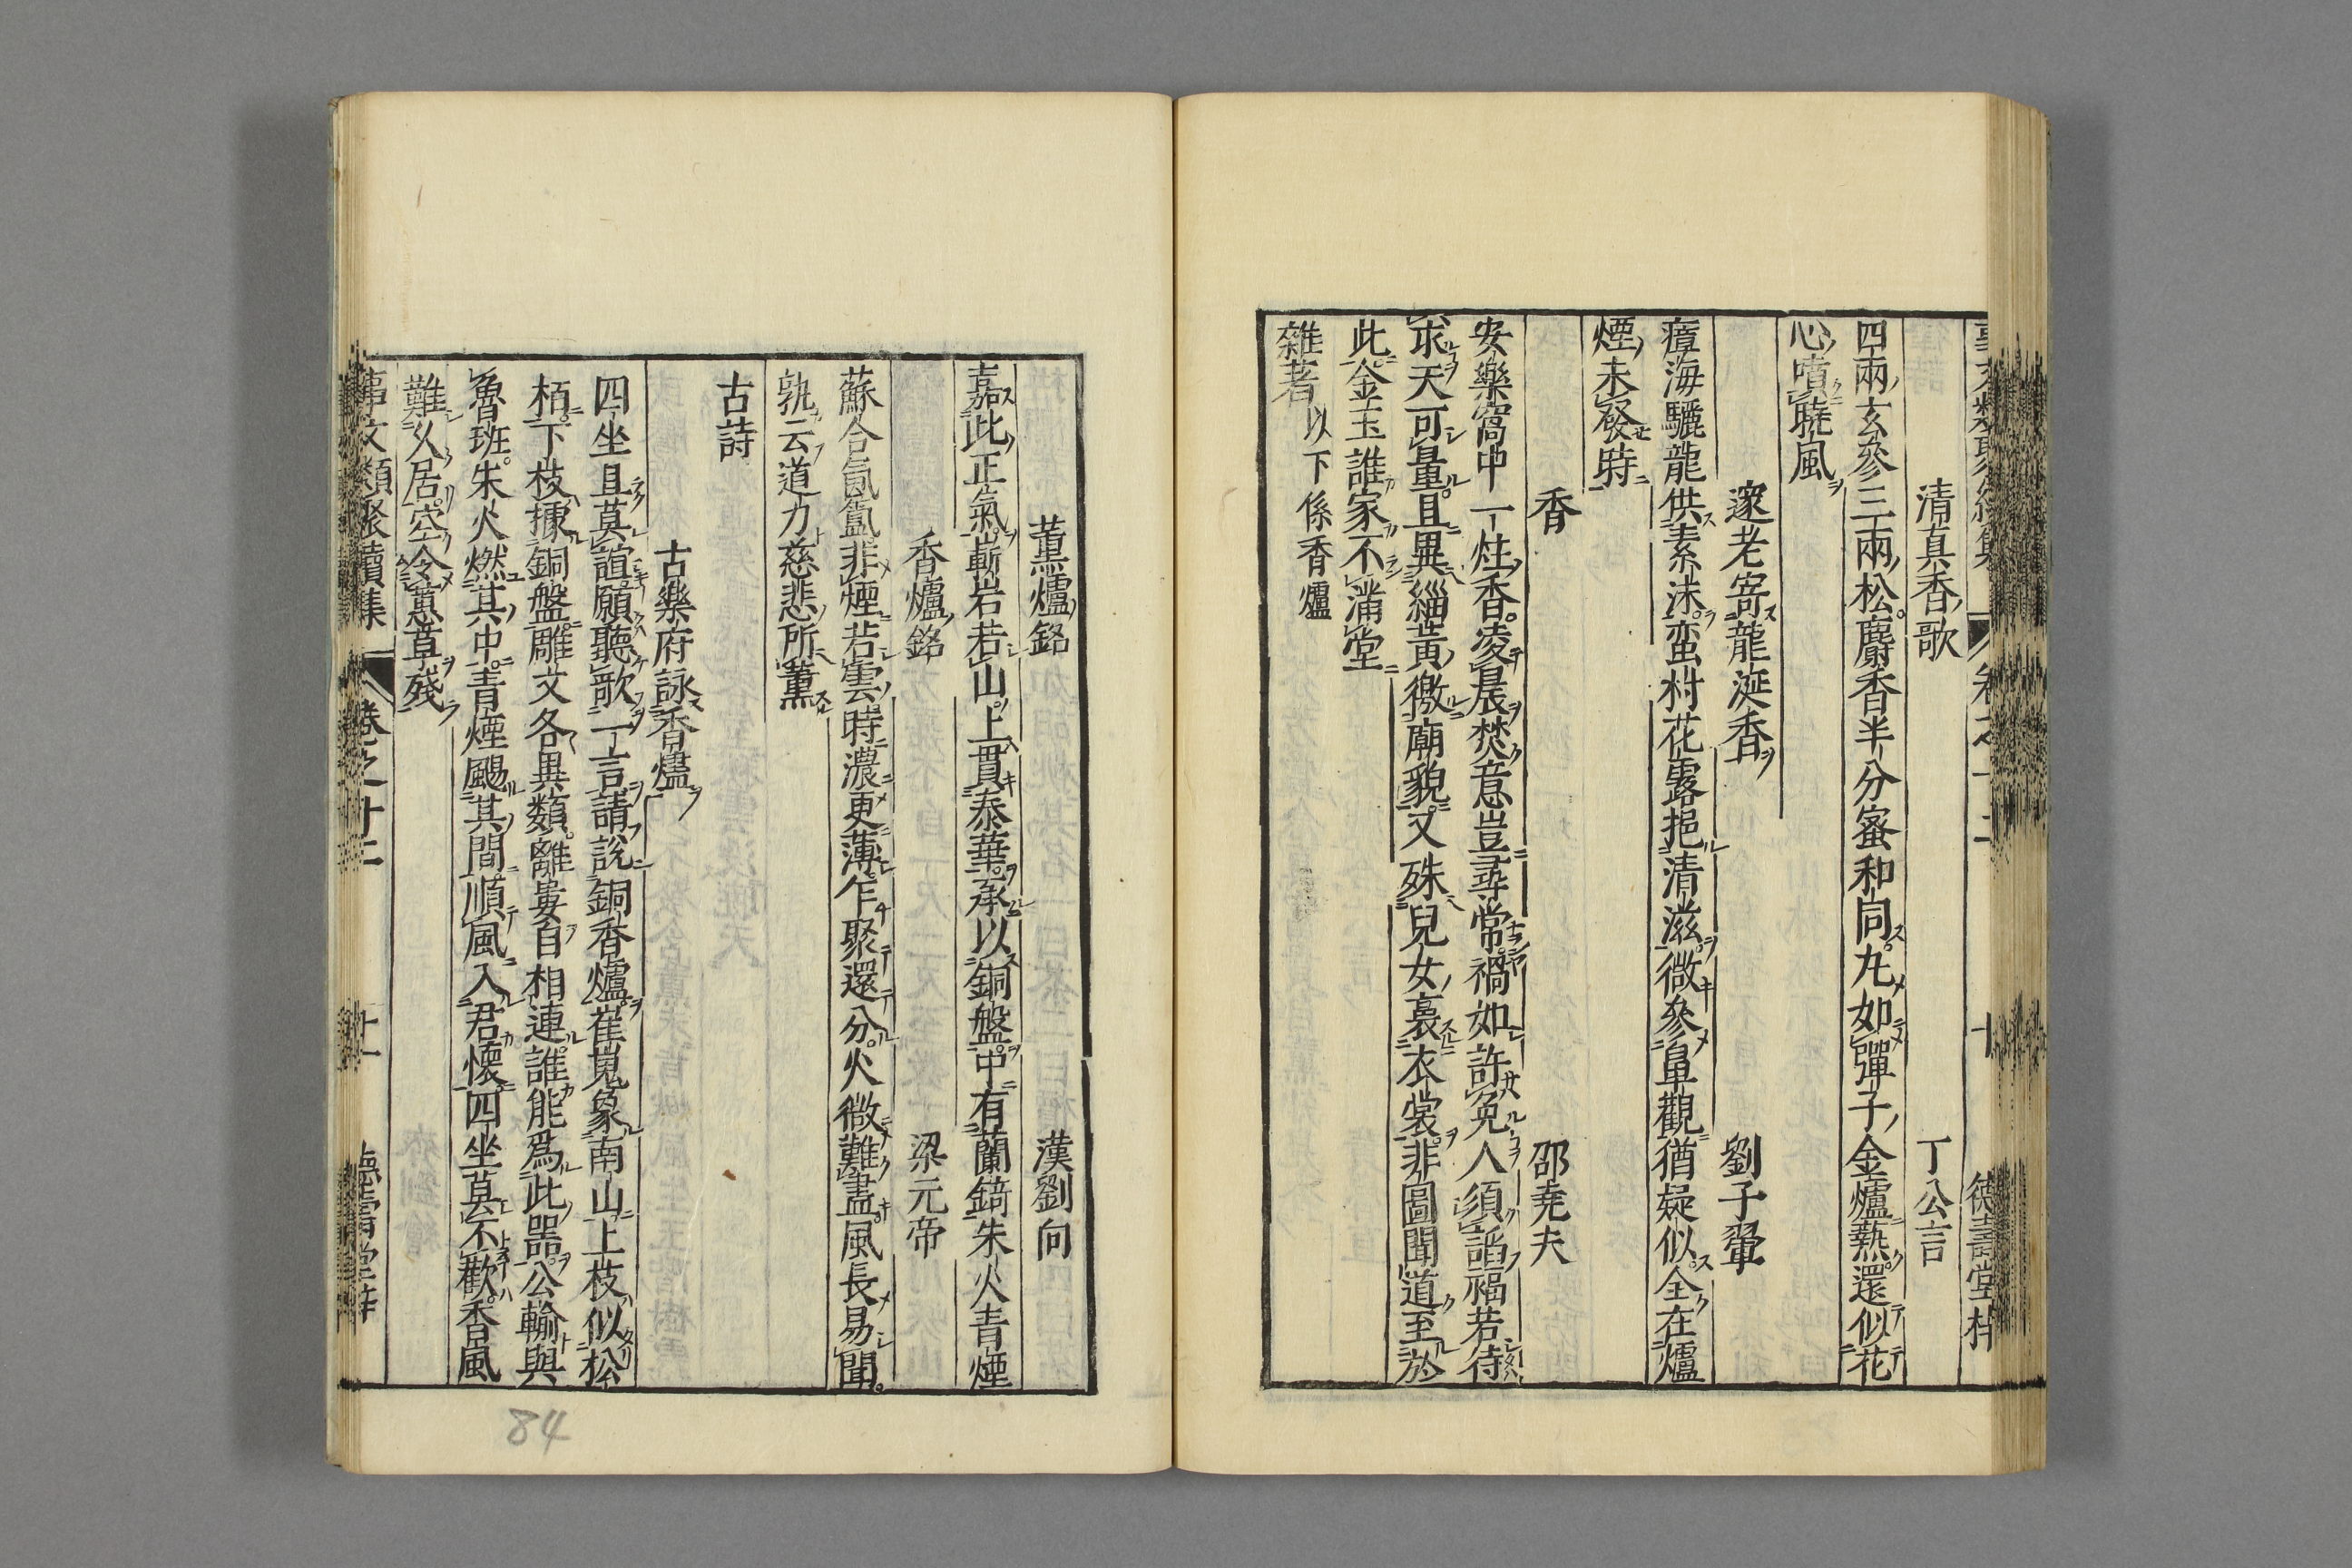 清真香歌　丁公言
四兩玄參三兩松麝香半分蜜和同丸如彈子金爐爇還似花
心噴曉風
邃老寄龍涎香　劉子翬
瘴海驪龍供素沫蛮村花露挹清滋微參鼻觀猶疑似全在爐
煙未發時
香　邵堯夫
安樂窩中一炷香凌晨焚意豈尋常禍如許免人須諂福若待
求天可量且異緇黃徼廟貌又殊兒女裛衣裳非圖聞道至於
此金玉誰家不滿堂
雜著以下係香爐
薰爐銘　漢劉向
嘉此正氣嶄岩若山上貫泰華承以銅盤中有蘭錡朱火青煙
香爐銘　梁元帝
蘇合氤氳非煙若雲時濃更薄乍聚還分火微難盡風長易聞
孰云道力慈悲所薰
古詩
古樂府詠香爐
四坐且莫諠願聽歌一言請說銅香爐崔嵬象南山上枝似松
栢下枝據銅盤雕文各異類離婁自相連誰能爲此器公輸與
魯班朱火燃其中青煙颺其間順風入君懷四坐莫不歡香風
難久居空令蕙草殘
事文類聚續集　卷之十二　十一
84